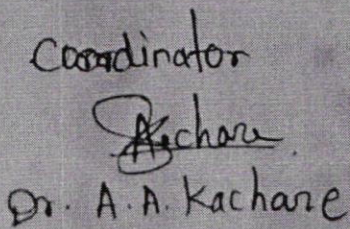 Coordinator
AKachare
Dr. A. A. Kachare